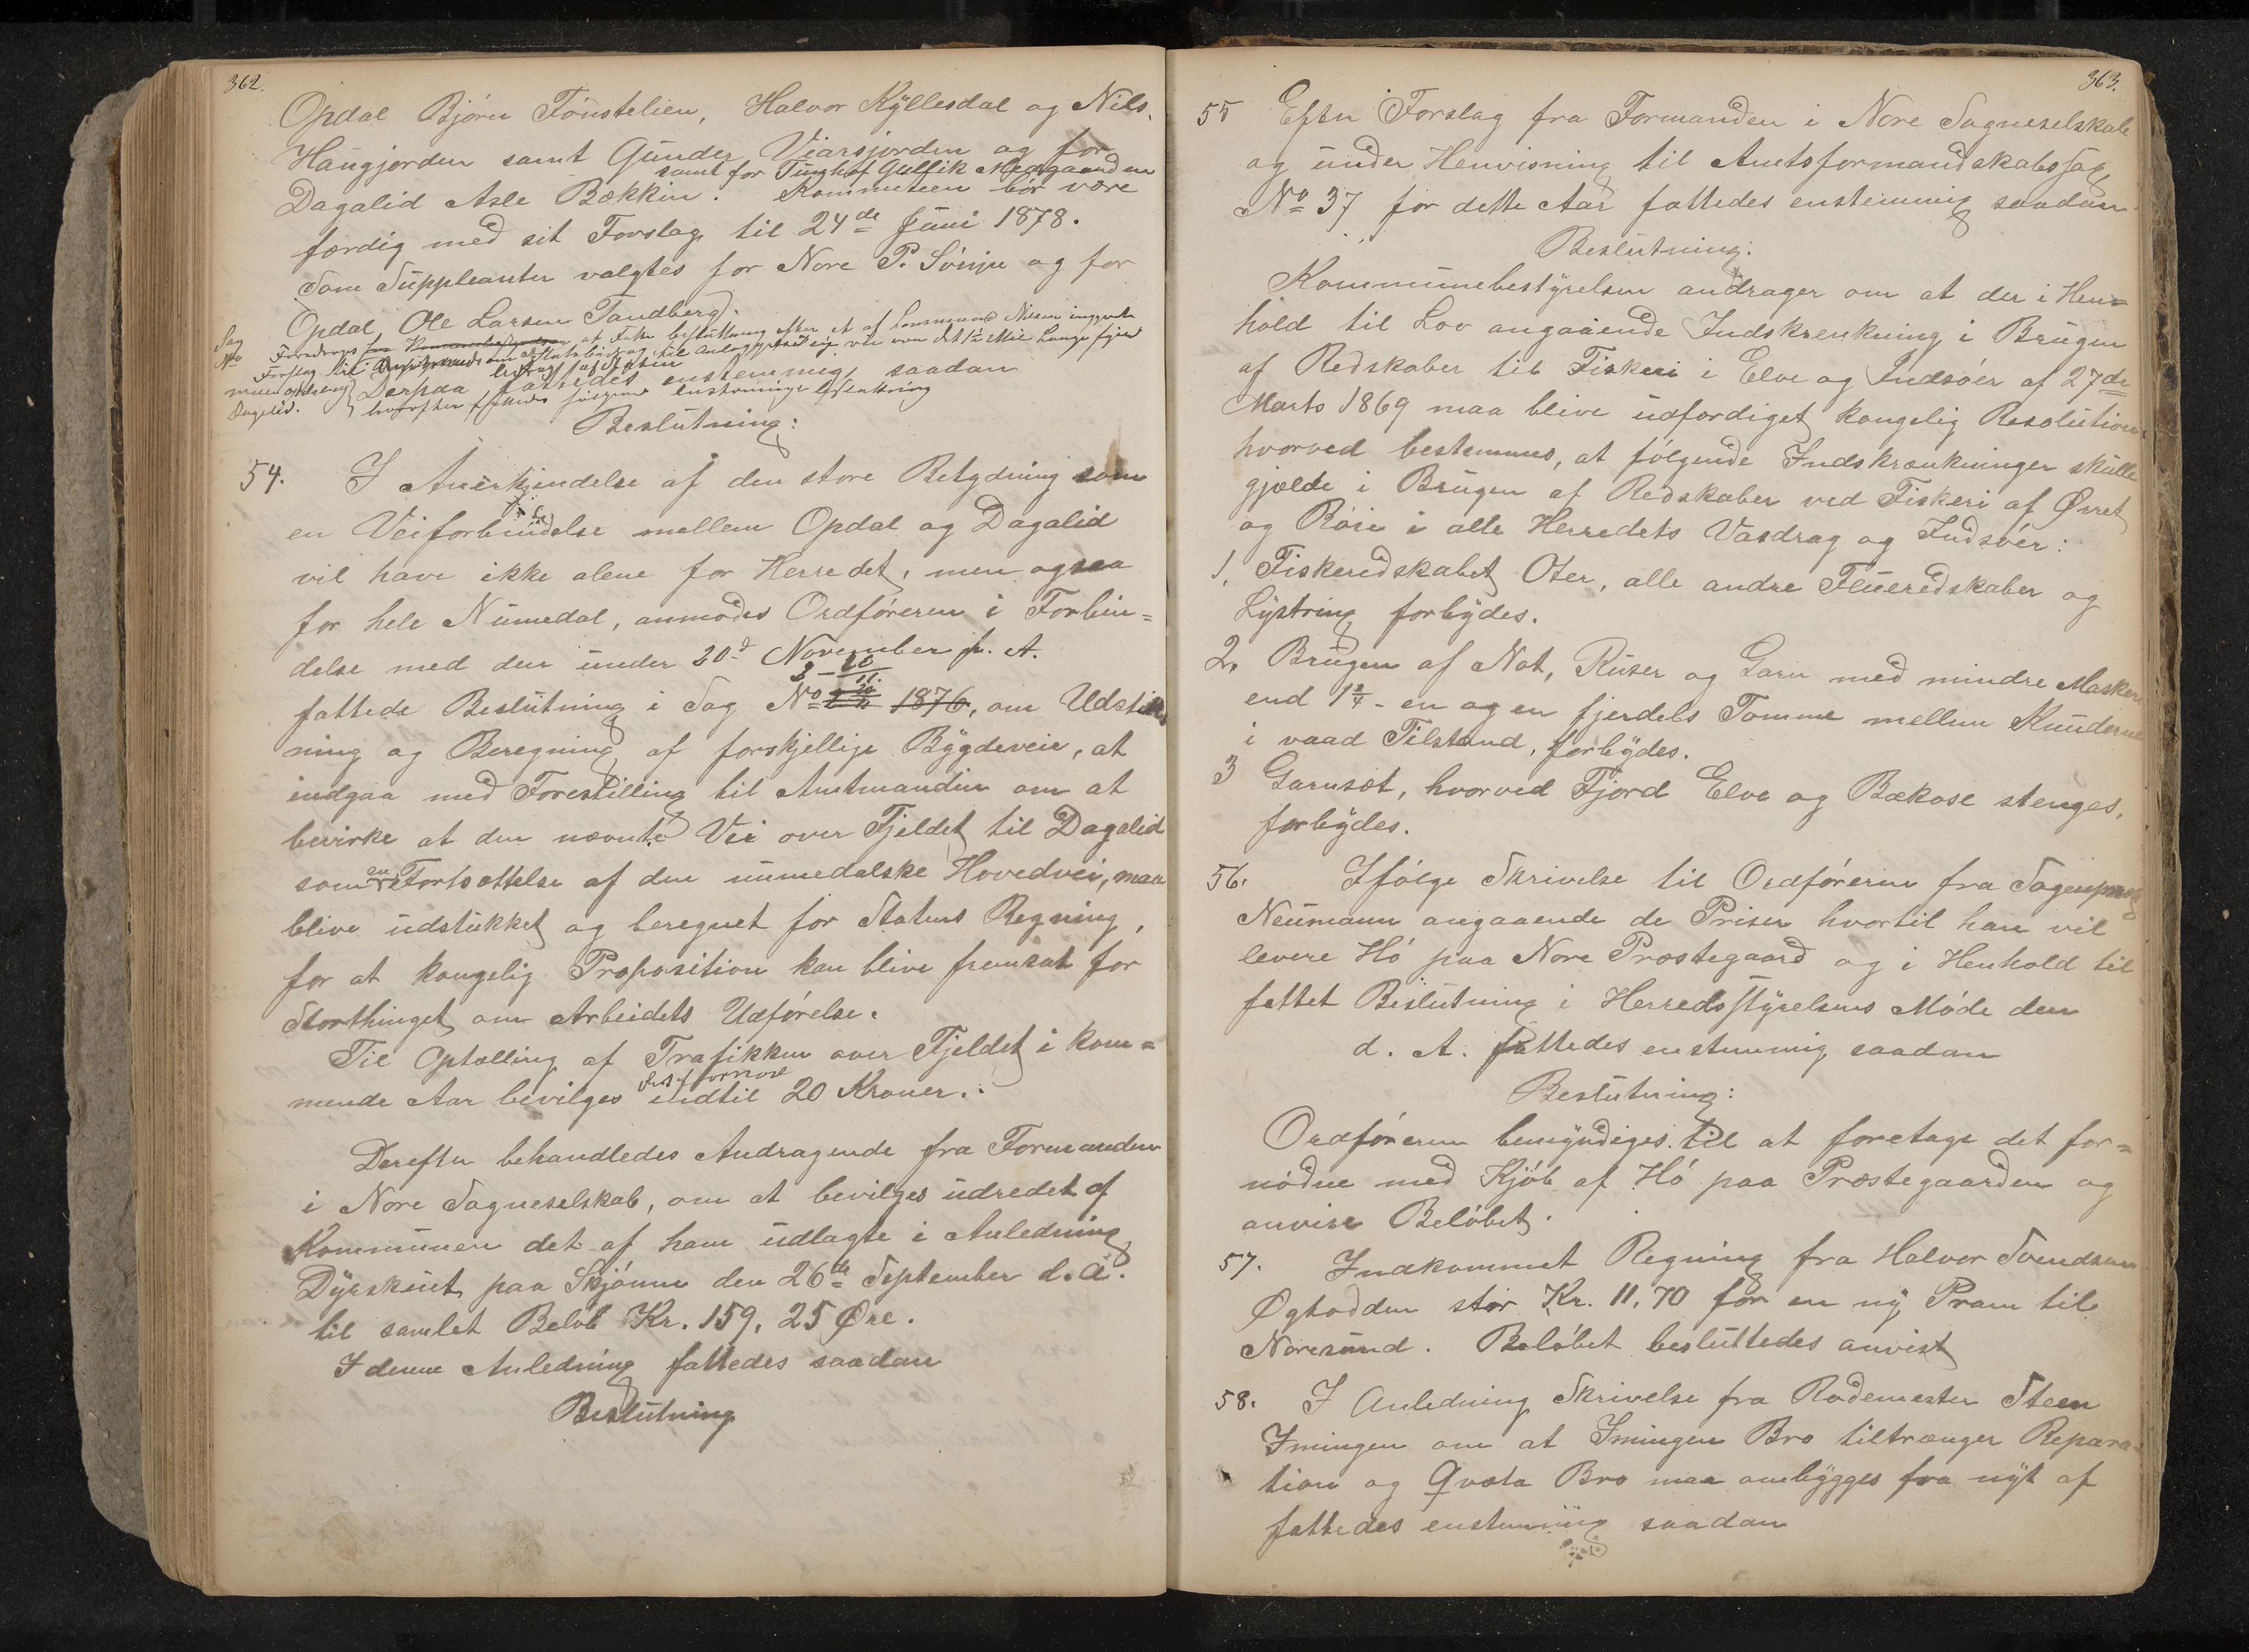 362.
Opdal Bjørn Tønstelien, Halvor Kyllesdal og Nils
Haugjorden samt Gunder Viarsjorden og for
samt for Tunghof Gullik Mergaarden
Dagalid Asle Bækkin. Kommiteen bør være
færdig med sit Forslag til 24de Juni 1878.
Som Suppleanter valgtes for Nore P. Sønju og for
Opdal Ole Larsen Tandberg.
Sag
No
Foredroges at Fatte beslutning efter et af
Forslag til
Dagalid.
Derpaa fattedes enstemmig saadan
hvorefter fattedes følgende enstemmige Beslutning
Beslutning:
54. I Anerkjendelse af den store Betydning som
en Veiforbindelse mellem Opdal og Dagalid
vil have ikke alene for Herredet, men ogsaa
for hele Numedal, anmodes Ordføreren i Forbin=
delse med den under 20d November f. A.
fattede Beslutning i Sag No 1876, om Udstik
ning og Beregning af forskjellige Bygdeveie, at
indgaa med Forestilling til Amtmanden om at
bevirke at den nævnte Vei over Fjeldet til Dagalid
som en Fortsættelse af den numedalske Hovedvei, maa
blive udstukket og beregnet for Statens Regning,
for at kongelig Proposition kan blive fremsat for
Storthinget om Arbeidets Udførelse.
Til Optælling af Trafikken over Fjeldet i kom=
mende Aar bevilges indtil 20 Kroner.
Derefter behandledes Andragende fra Formanden
i Nore Sogneselskab, om at bevilges udredet af
Kommunen det af ham udlagte i Anledning
Dyrskuet paa Skjønne den 26de September d. A.
til samlet Beløb Kr. 159, 25 Øre.
I denne Anledning fattedes saadan
Beslutning
363.
55 Efter Forslag fra Formanden i Nore Sogneselskab
og under Henvisning til Amtsformandskabssag
No 37 for dette Aar fattedes enstemmig saadan
Beslutning:
Kommunebestyrelsen andrager om at der i Hen=
hold til Lov angaaende Indskrenkning i Brugen
af Redskaber til Fiskeri i Elve og Indsøer af 27de
Marts 1869 maa blive udfærdiget kongelig Resolution
hvorved bestemmes, at følgende Indskrænkninger skulle
gjælde i Brugen af Redskaber ved Fiskeri af Ørret
og Røie i alle Herredets Vasdrag og Indsøer:
1. Fiskeredskabet Oter, alle andre Flueredskaber og
Lystring forbydes.
2. Brugen af Not, Ruser og Garn med mindre Masker
end 1 1/4 - en og en fjerdels Tomme mellem Knuderne
i vaad Tilstand, forbydes.
3 Garnsæt, hvorved Fjord Elve og Bækose stenges,
forbydes.
56. Ifølge Skrivelse til Ordføreren fra Sogneprest
Neumann angaaende de Priser hvortil han vil
levere Hø paa Nore Præstegaard og i Henhold til
fattet Beslutning i Herredsstyrelsens Møde den
d. A. fattedes enstemmig saadan
Beslutning:
Ordføreren bemyndiges til at foretage det for=
nødne med Kjøb af Hø paa Præstegaarden og
anvise Beløbet.
57. Indkommet Regning fra Halvor Svendsen
Øghodden stor Kr. 11,70 for en ny Pram til
Noresund. Beløbet besluttedes anvist
58. I Anledning Skrivelse fra Rodemester Steen
Imingen om at Imingen Bro tiltrænger Repara
tion og Qvæta Bro maa ombygges fra nyt af
fattedes enstemmig saadan